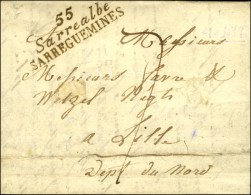 55
Sarrealbe
SARREGUEMINES
Messieurs
Messieurs Sarre &
Wetzel Negts
a Lille
Dept du Nord